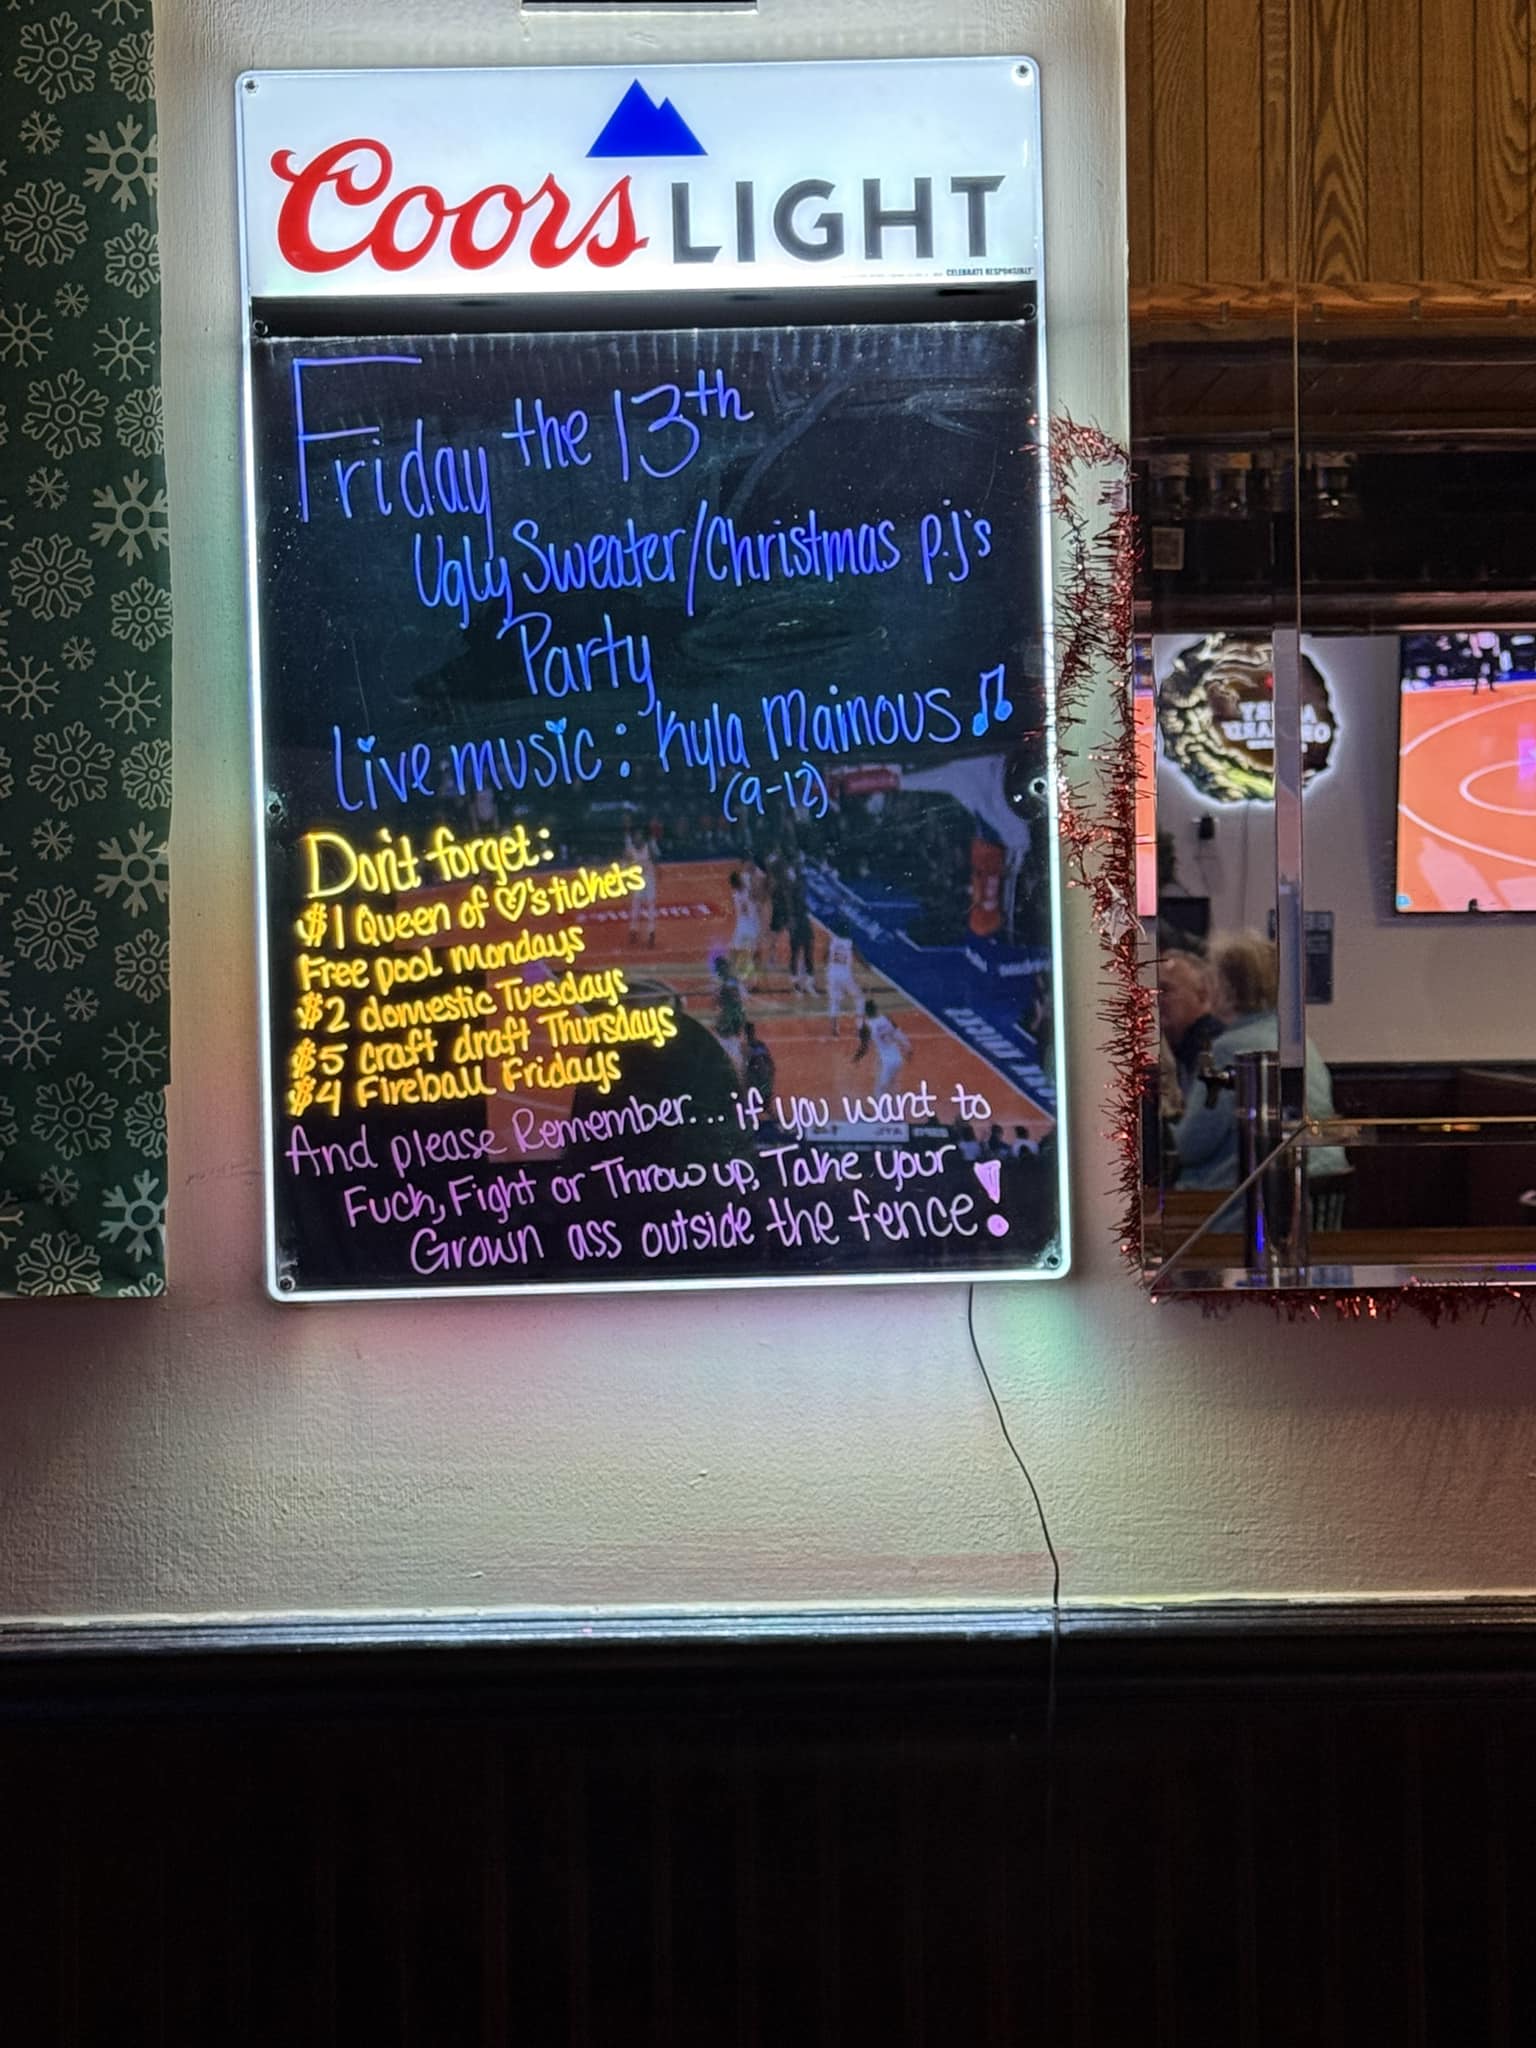 Coors LIGHT
CELEBRATE RESPONSIBLY
Friday the 13th
Ugly Sweater/Christmas p.j's
Party
Live music: Kyla Mainous
(9-12)
Don't forget:
$1 Queen of ♡'s tickets
Free pool mondays
$2 domestic Tuesdays
$5 craft draft Thursdays
$4 Fireball Fridays
And please Remember... if you want to
Fuck, Fight or Throw up, Take your
Grown ass outside the fence!